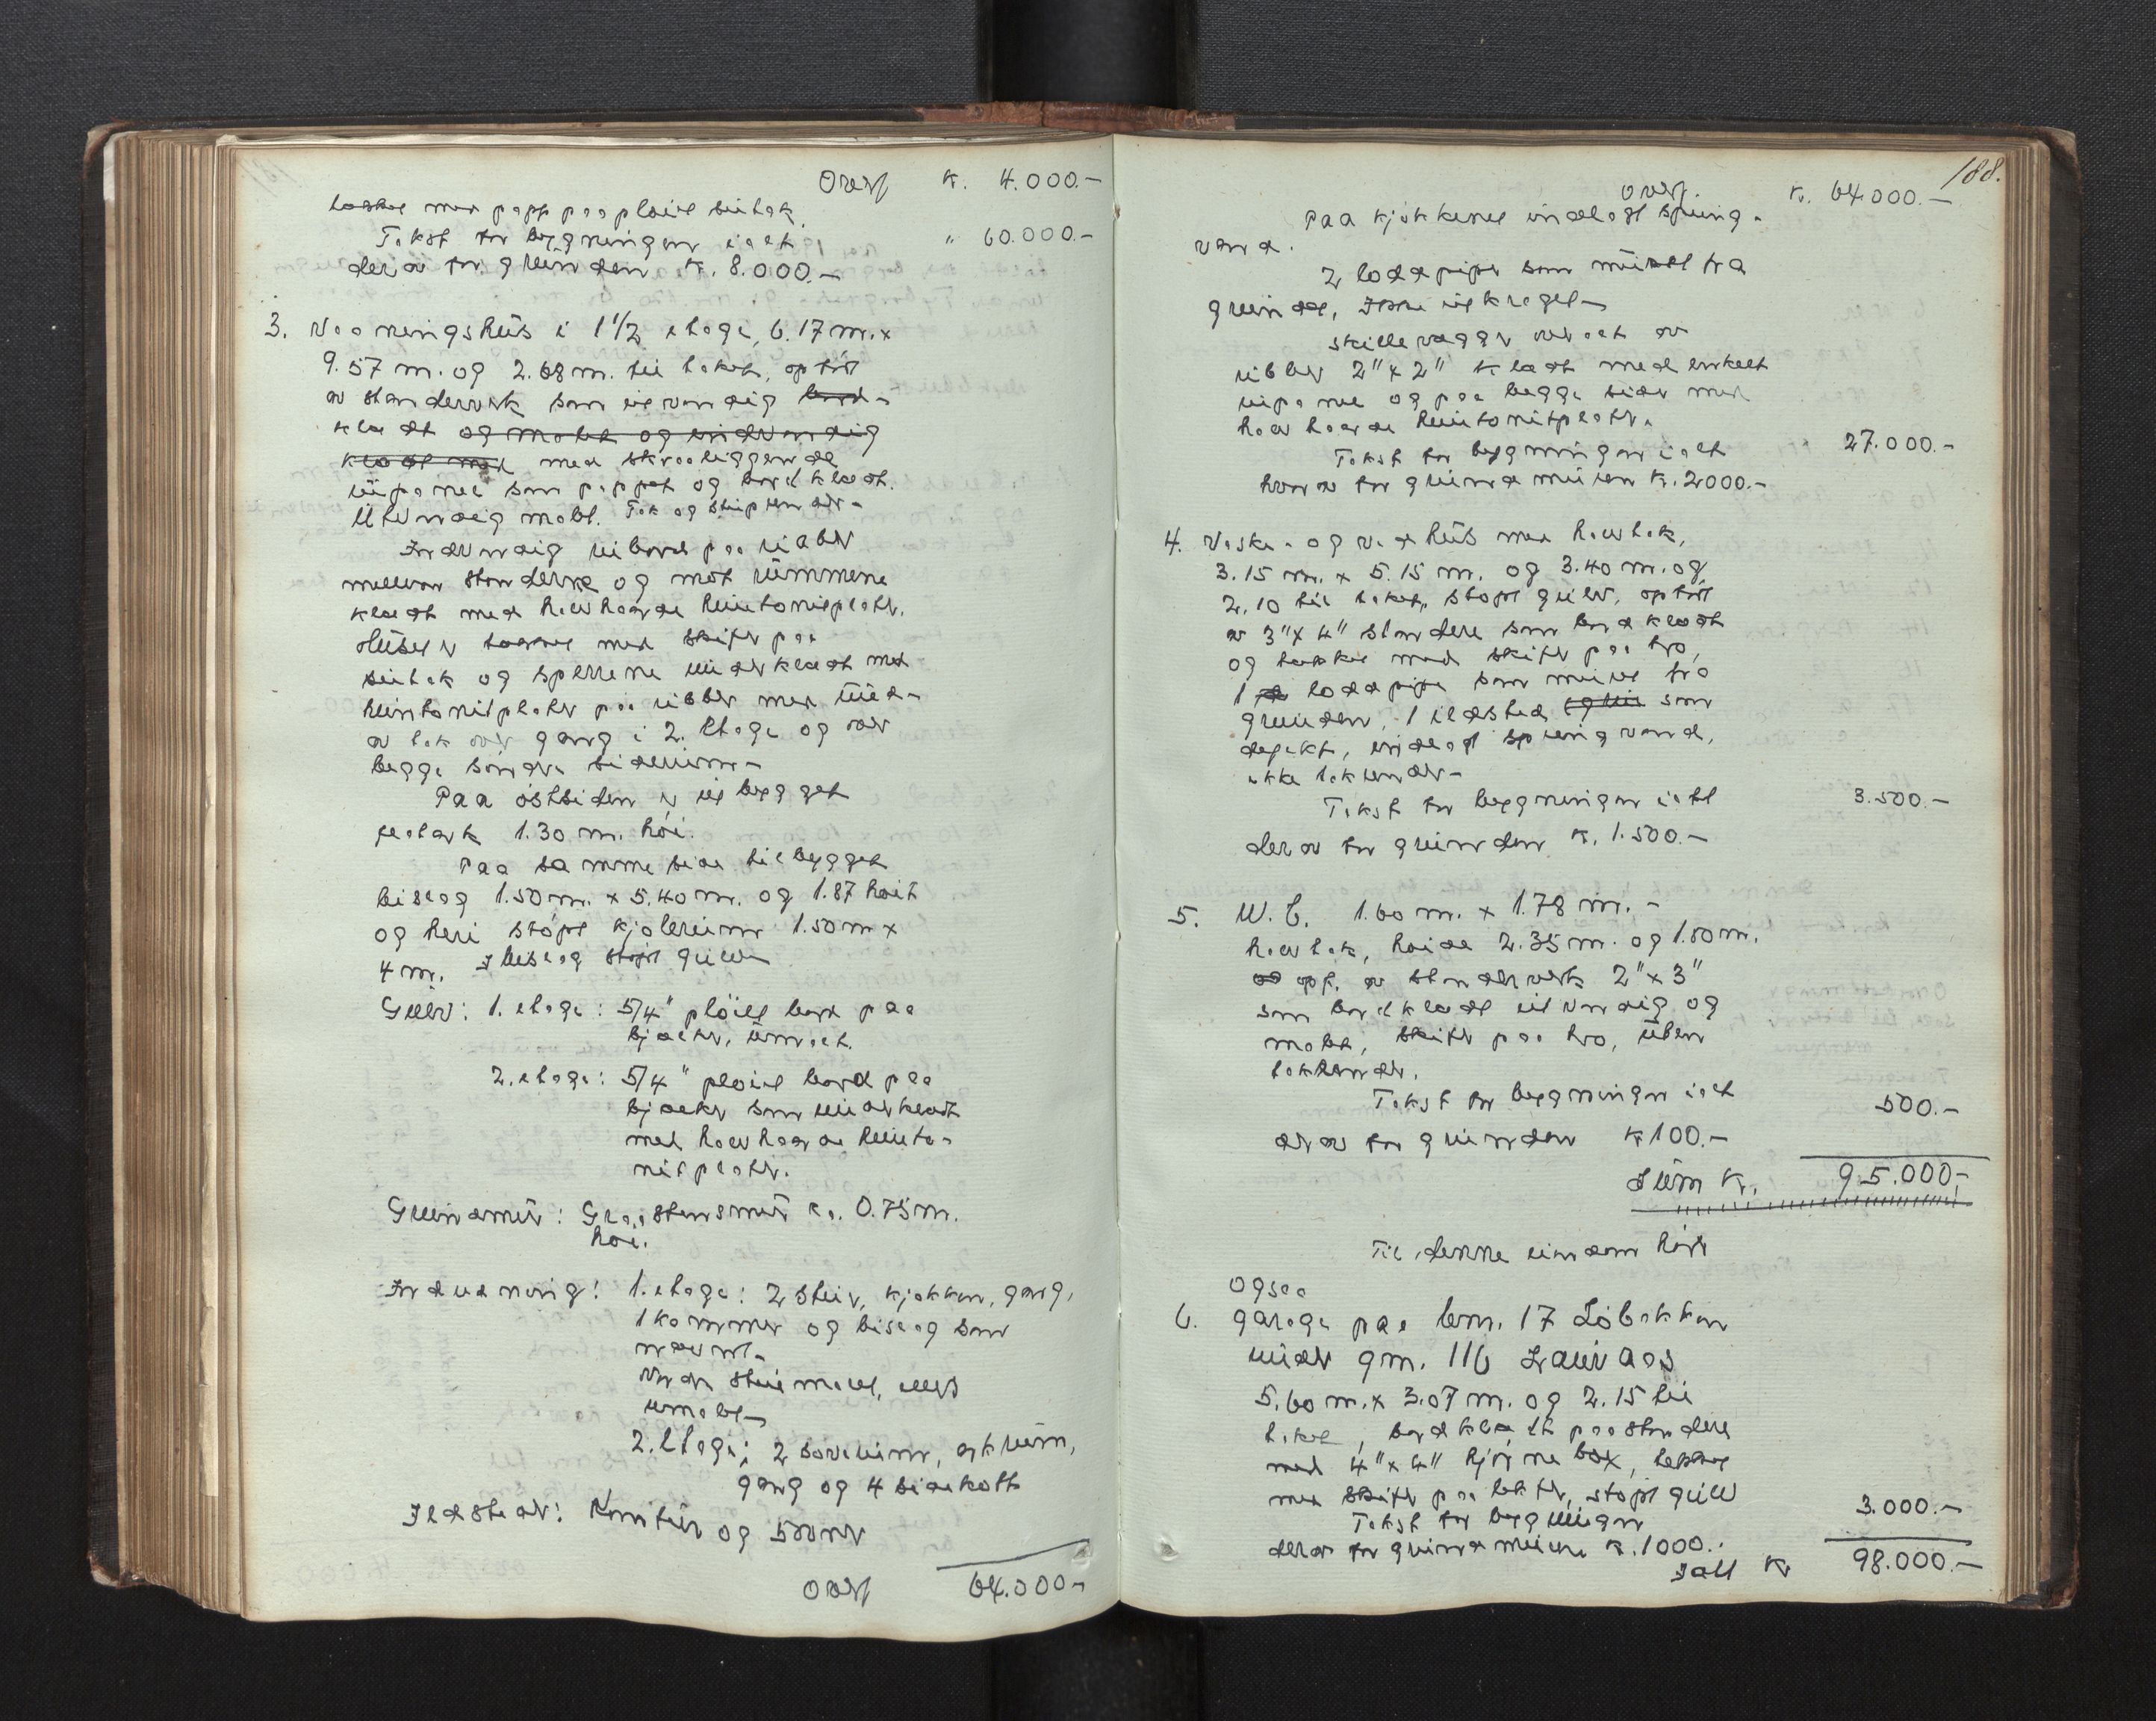 Overf k. 4.000.-
tækket med papp paa pløiet sutak.
Takst for bygningen ialt " 60.000.-
derav for grunden K. 8.000.-
3. Vaaningshus i 1 1/2 etage, 6.17 m. x
9.57 m. og 2.68 m. til taket, opført
av standerverk som utvendig bord-
klædt og malet og indvendig
klædt med med skraaliggende
rupanel som pappet og bordklædt.
Utvendig malt. Tak og stuprender.
Indvendig rubord paa ribber
mellem standerne og mot rummene
klædt med halvhaarde huntonitplater.
Huset er tækket med skifer paa
sutak og sperrene underklædt med
huntonitplater paa ribber med
av tak over gang i 2. etage og over
begge søndre siderum.
Paa østsiden er utbygget
1.30 m. høi.
Paa samme side tilbygget
bislag 1.50 m. x 5.40 m. og 1.87 høit
og heri støpt kjølerum 1.50 m x
4 m. I bislag støpt gulv.
Gulv: 1. etage: 5/4" pløiet bord paa
bjælker, umalt.
2. etage: 5/4" pløiet bord paa
bjælker som underklædt
med halvhaarde hunto-
nitplater.
Grundmur: Graastensmur ca. 0.75 m.
høi.
Indredning: 1. etage: 2 stuer, kjøkken, gang,
1 kammer og bislag som
nævnt.
Nordre stue malt, ellers
umalt.
2. etage: 2 soverum, arkrum,
gang og 4 sidekott
Ildsteder: Komfur og 5 ovner
Overf 64.000.-
188.
overf. K. 64000.-
Paa kjøkkenet indlagt spring-
vand.
2 loddpiper som muret fra
grunden, ikke utkraget.
Skillevægger overalt av
ribber 2" x 2" klædt med enkelt
rupanel og paa begge sider med
halvhaarde huntonitplater.
Takst for bygningen ialt 27.000.-
hvorav for grundmuren K. 2000.-
4. Vaske- og vedhus med halvtak,
3.15 m. x 5.15 m. og 3.40 m. og
2.10 til taket, støpt gulv, opført
av 3" x 4" standere som bordklædt
og tækket med skifer paa tro,
1 loddpipe som muret fra
grunden, 1 ildsted som
defekt, indlagt springvand,
ikke takrender.
Takst for bygningen ialt 3.500.-
derav for grunden K. 1.500.-
5. W.C. 1.60 m. x 1.78 m. -
halvtak, høide 2.35 m. og 1.80 m.
opf. av standerverk 2" x 3"
som bordklædt utvendig og
malet, skifer paa tro, uten
takrender.
Takst for bygningen ialt 500.-
derav for grunden K 100.-
Sum K. 95.000.-
Til denne eiendom hører
ogsaa
6. garage paa bnr. 17 Løbakken
under gnr. 116 Lauvaas
5.60 m. x 3.07 m. og 2.15 til
taket, bordklædt paa standere
med 4" x 4" hjørne, tækket
med skifer paa lekter, støpt gulv
Takst for bygningen 3.000.-
derav for grundmuren K. 1000.-
Ialt K 98.000.-